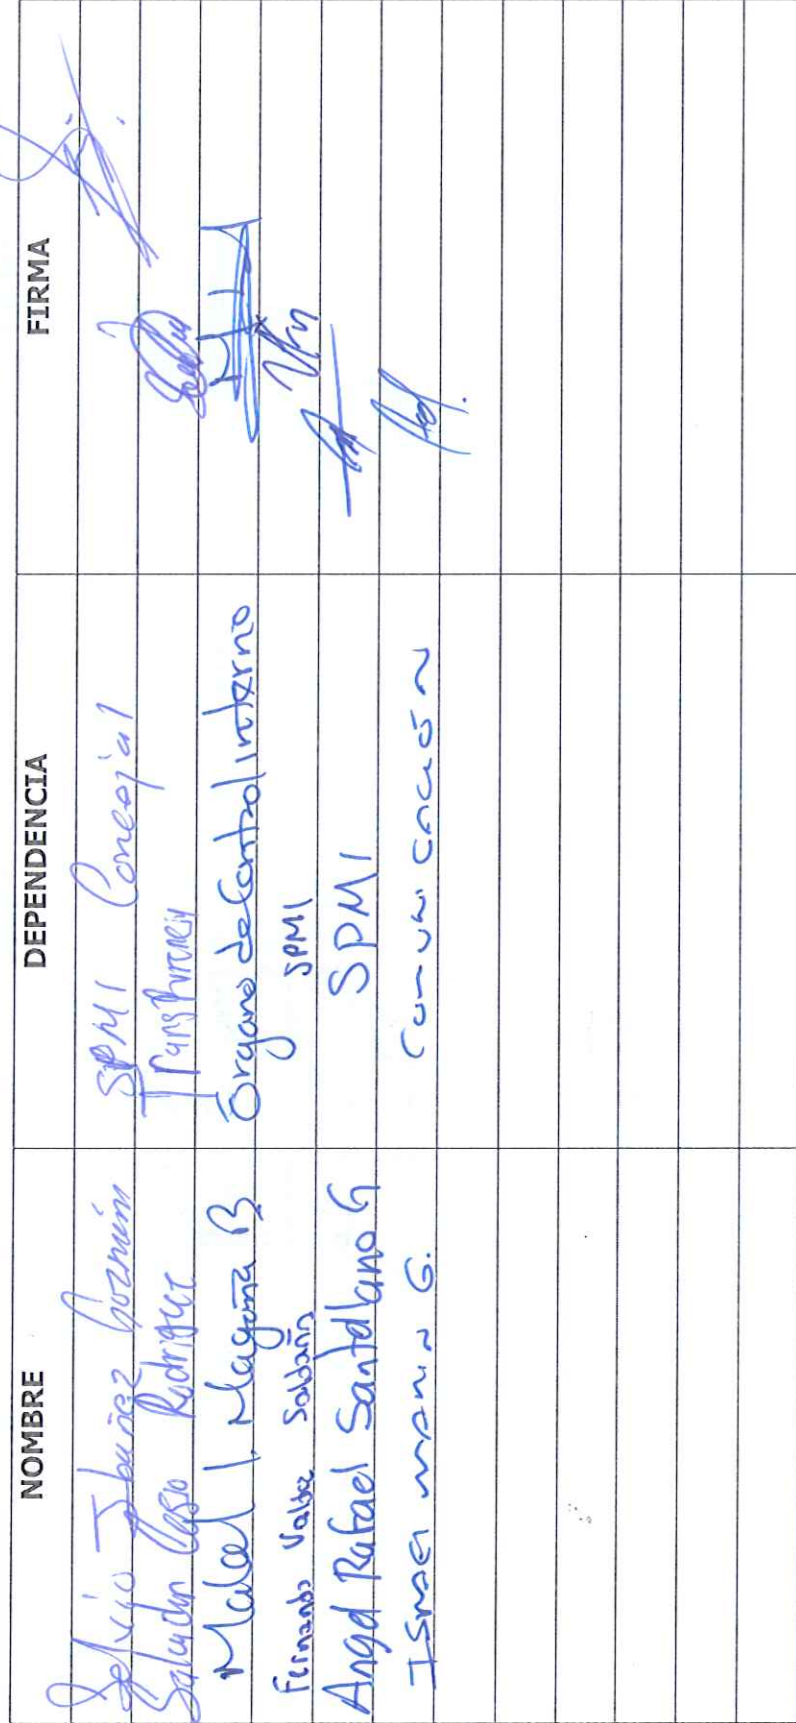 NOMBRE DEPENDENCIA FIRMA
Ibáñez Guzmán SPMI Concejal
Salvador Rodríguez
Mabel I. Magaña B Órgano de Control interno
Fernando Valdez Saldaña SPMI
Angel Rafael Santellano G SPMI
ISRAEL MARIN G. COMUNICACIÓN